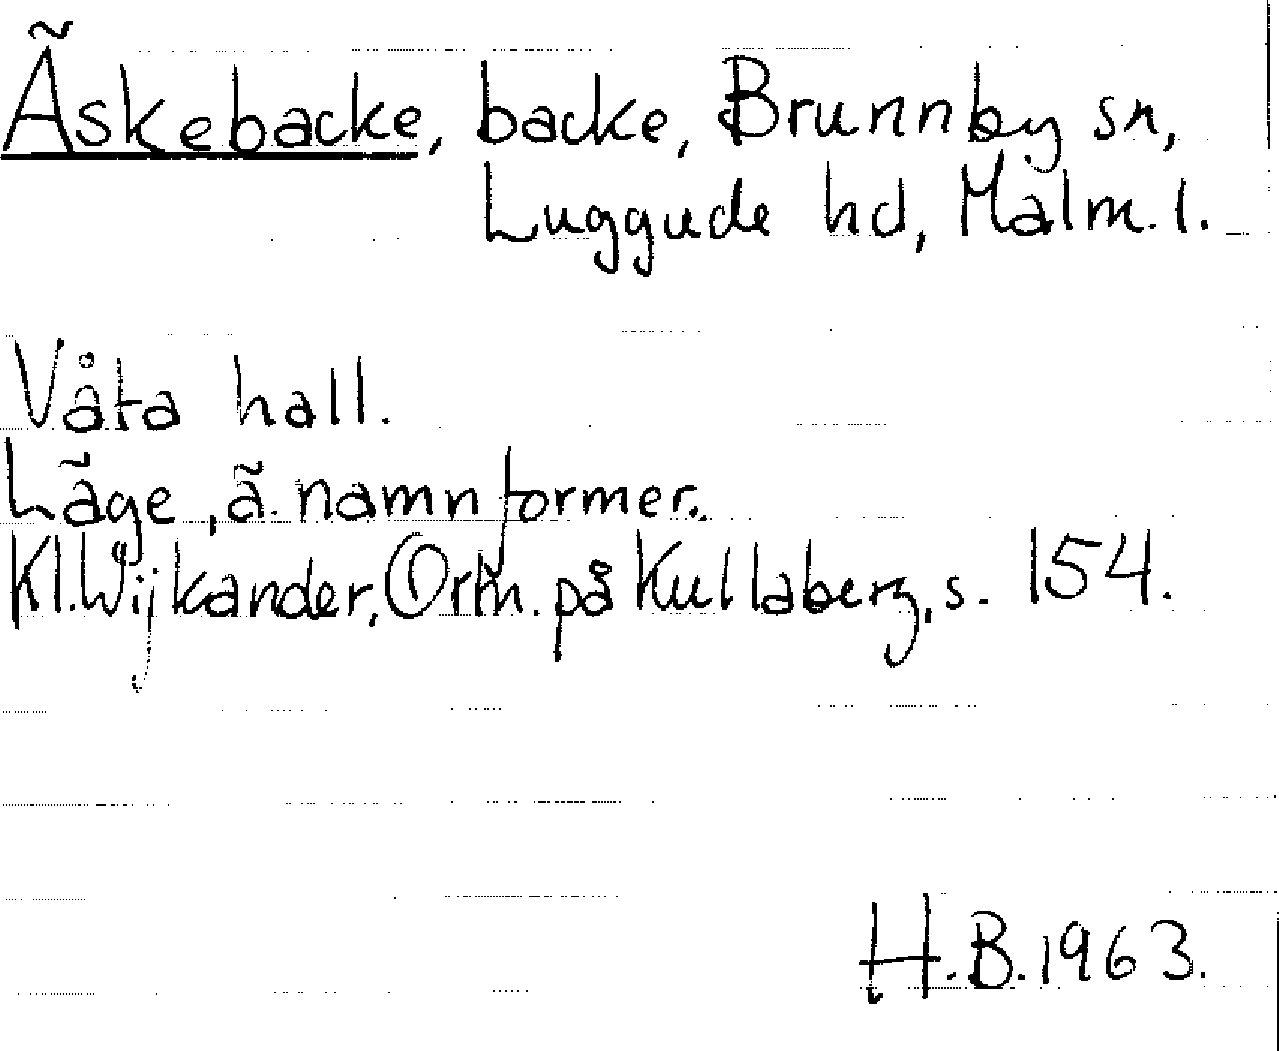 Äskebacke, backe, Brunnby sn,
Luggude hd, Malm. l.
Våta hall.
Läge, ä. namnformer.
Kl. Wijkander, Orm. på Kullaberg, s. 154.
H.B. 1963.